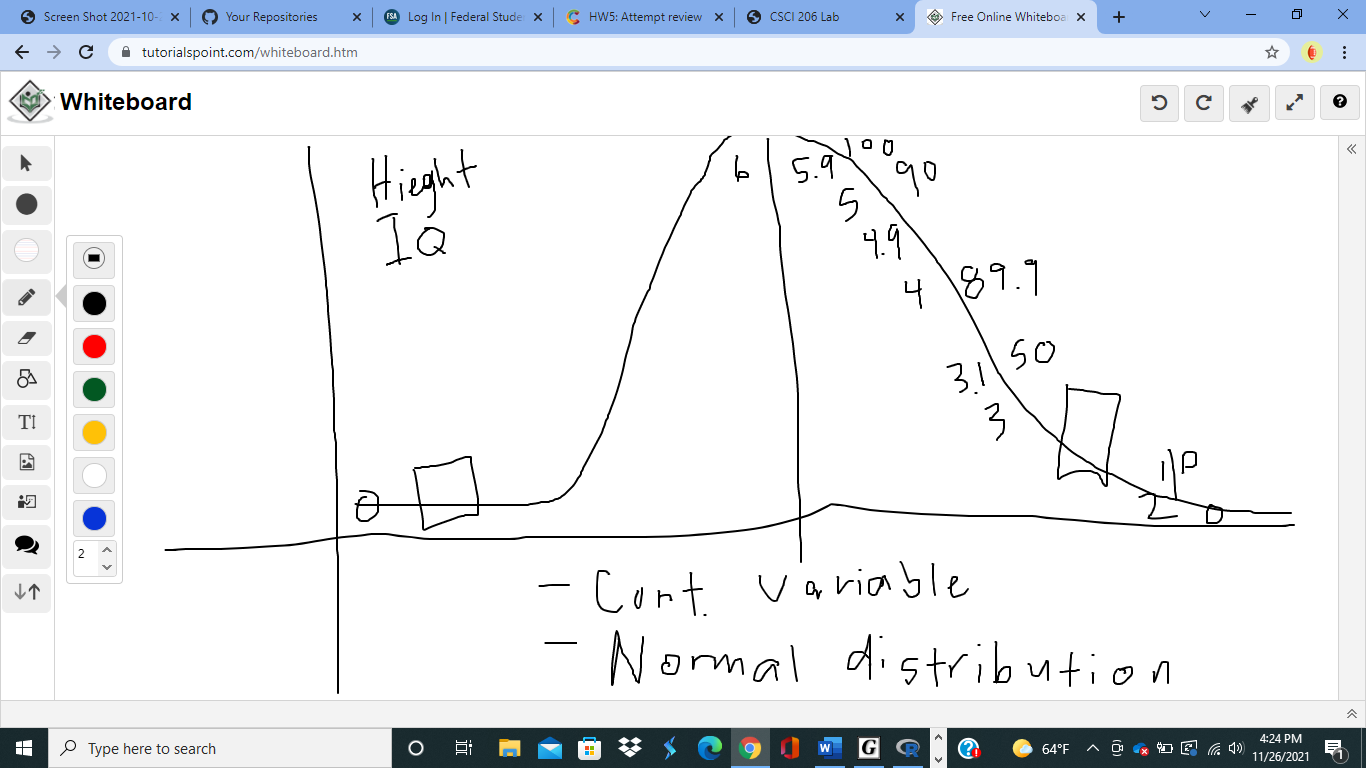 Screen Shot 2021-10-
Your Repositories
Log In | Federal Stude
HW5: Attempt review
CSCI 206 Lab
Free Online Whiteboa
tutorialspoint.com/whiteboard.htm
Whiteboard
Hieght
IQ
6
5.9
100
90
5
4.9
4
89.9
50
3.1
3
2
0
- Cont. variable
- Normal distribution
2
Type here to search
64°F
4:24 PM
11/26/2021
1